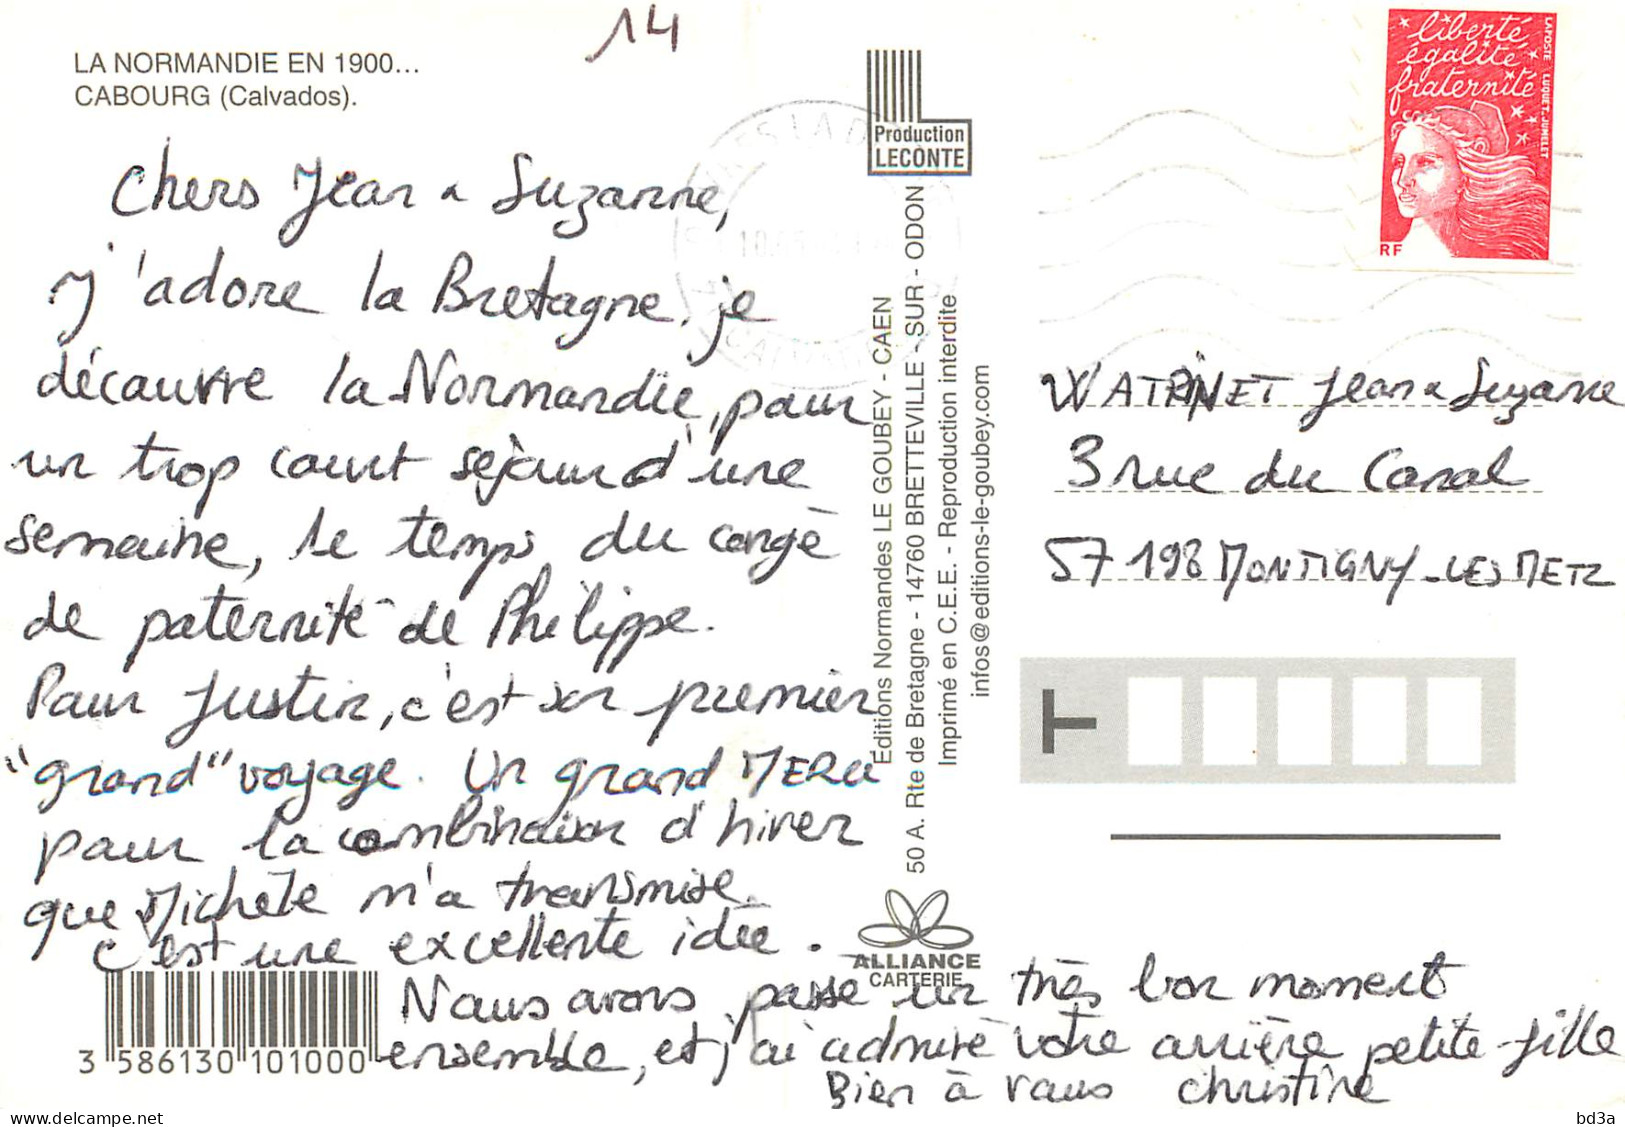 14
LA NORMANDIE EN 1900...
CABOURG (Calvados).
Chers Jean & Suzanne,
J'adore la Bretagne, je
découvre la Normandie, pour
un trop court séjour d'une
semaine, le temps du congé
de paternité de Philippe.
Pour Justin, c'est son premier
"grand" voyage. Un grand MERCI
pour la combinaison d'hiver
que Michèle m'a transmise.
c'est une excellente idée.
Nous avons passé un très bon moment
ensemble, et j'ai admiré votre arrière petite-fille
Bien à vous christine
3 586130 101000
Production
LECONTE
Editions Normandes LE GOUBEY - CAEN
50 A. Rte de Bretagne - 14760 BRETTEVILLE - SUR - ODON
Imprimé en C.E.E. - Reproduction interdite
infos@editions-le-goubey.com
ALLIANCE
CARTERIE
liberté
égalité
fraternité
LA POSTE LUQUET.JUMELET
RF
WATRINET Jean & Suzanne
3 rue du Canal
57198 MONTIGNY-LES METZ
T
delcampe.net
bd3a